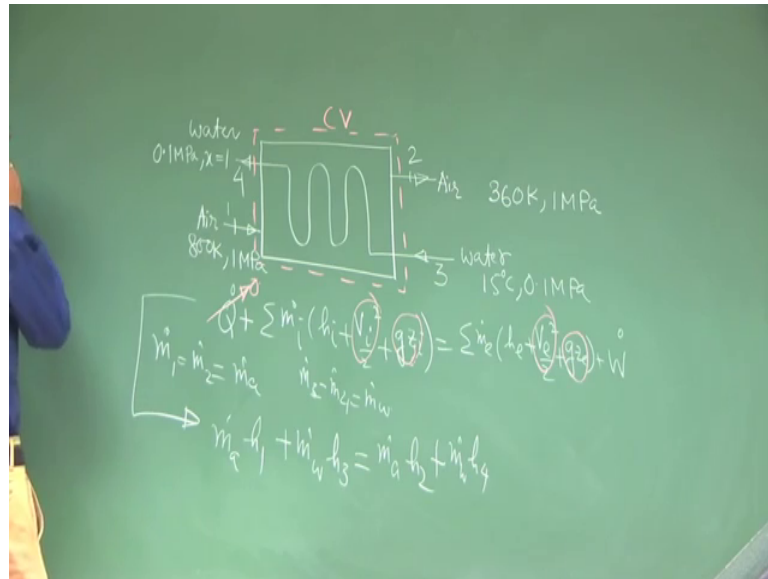 CV
water
0.1MPa, x=1
4
2
Air
360K, 1MPa
Air
1
800K, 1MPa
water
3
15°C, 0.1MPa
0
Q̇ + Σ ṁi (hi + Vi²/2 + gzi) = Σ ṁe (he + Ve²/2 + gze) + Ẇ
ṁ1 = ṁ2 = ṁa
ṁ3 = ṁ4 = ṁw
ṁa h1 + ṁw h3 = ṁa h2 + ṁw h4